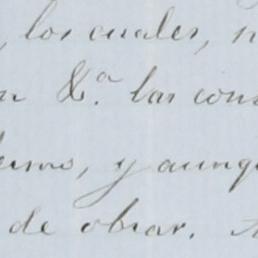 , los cuales,
&.a las cons
, y aunq
de obrar.